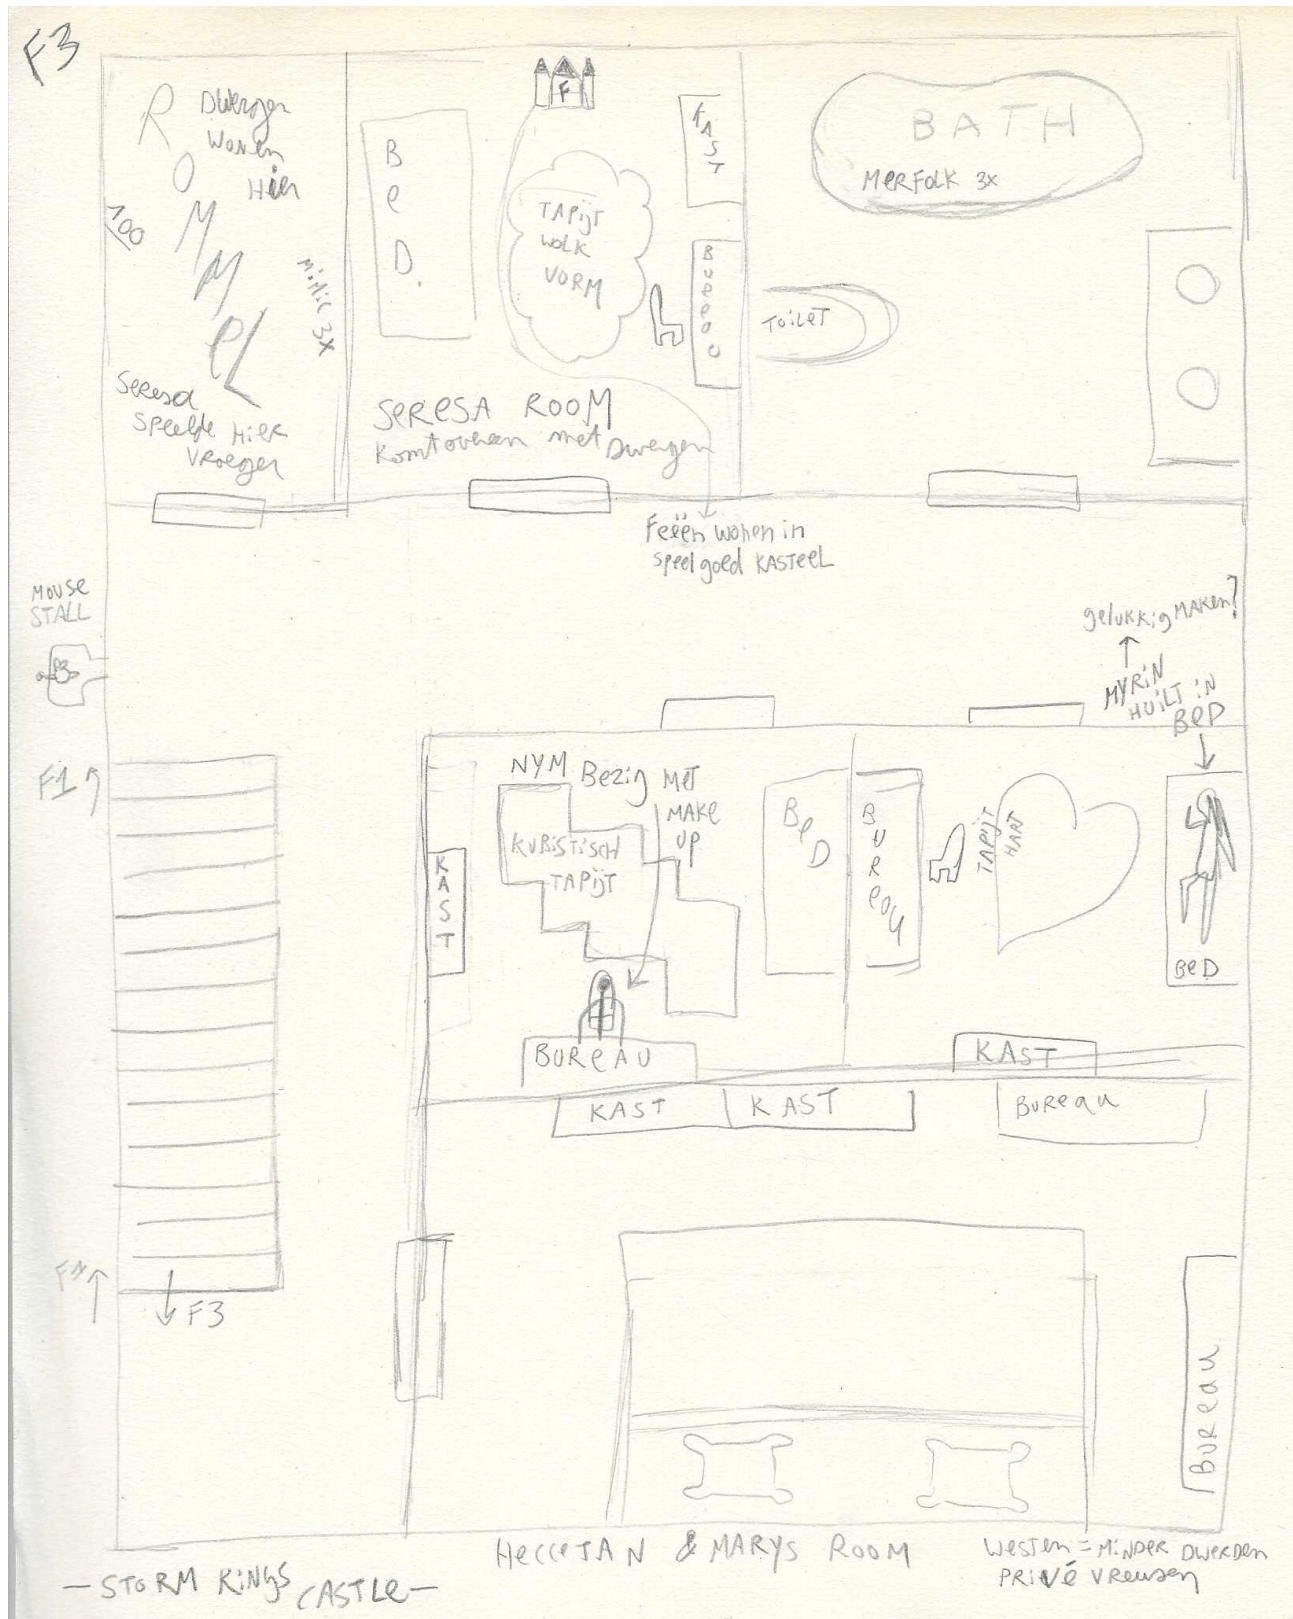 F3
ROMMEL
Dwergen
wonen
Hier
100
Mimic 3x
Seresa
speelde Hier
vroeger
BeD
F
TAPijT
WOLK
VORM
KAST
Bureau
SERESA ROOM
Komt overeen met Dwergen
BATH
MERFOLK 3x
TOiLeT
Feeën wonen in
speelgoed KASTEEL
MOUSE
STALL
gelukkig MAKEN?
MYRiN
HUiLT iN
BeD
F1
NYM Bezig MeT
MAKe
UP
KUBiSTiSCH
TAPijT
KAST
BeD
BUReau
TAPijT
HART
BeD
BUReAU
KAST
KAST
KAST
Bureau
F3
BUReau
& MARYS ROOM
WeSTen = MiNDER
PRiVé
- STORM KiNGS CASTLe -